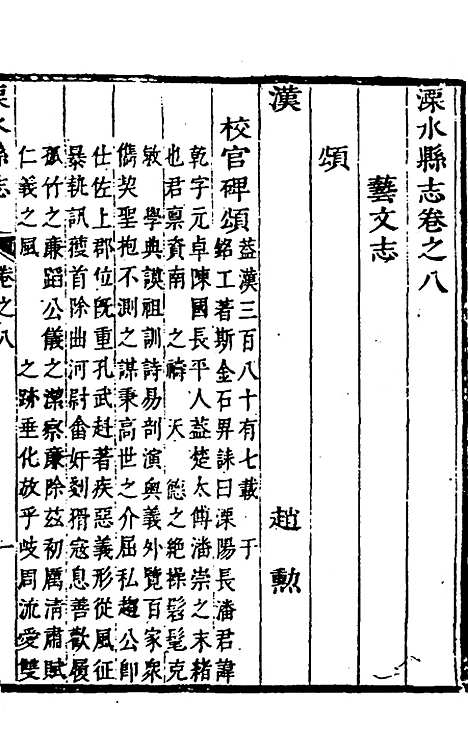 溧水縣志卷之八
藝文志
頌
漢 趙勲
校官碑頌
益漢三百八十有七載 于
銘工著斯金石昇誄曰溧陽長潘君諱
乾字元卓陳國長平人益楚太傅潘崇之末緒
也君禀資南 之禱 天 㐫之絶操髫髦克
敏 學典謨祖訓詩易剖演奥義外覽百家衆
儁契聖抱不測之謀秉高世之介屈私趨公即
仕佐上郡位旣重孔武赳著疾惡義形從風征
暴執訊獲首除曲河尉畲奸剗猾寇息善歡履
孤竹之廉蹈公儀之潔察廉除兹初厲清肅賦
仁義之風 之跡垂化放乎岐周流愛雙
溧水縣志 卷之八 一